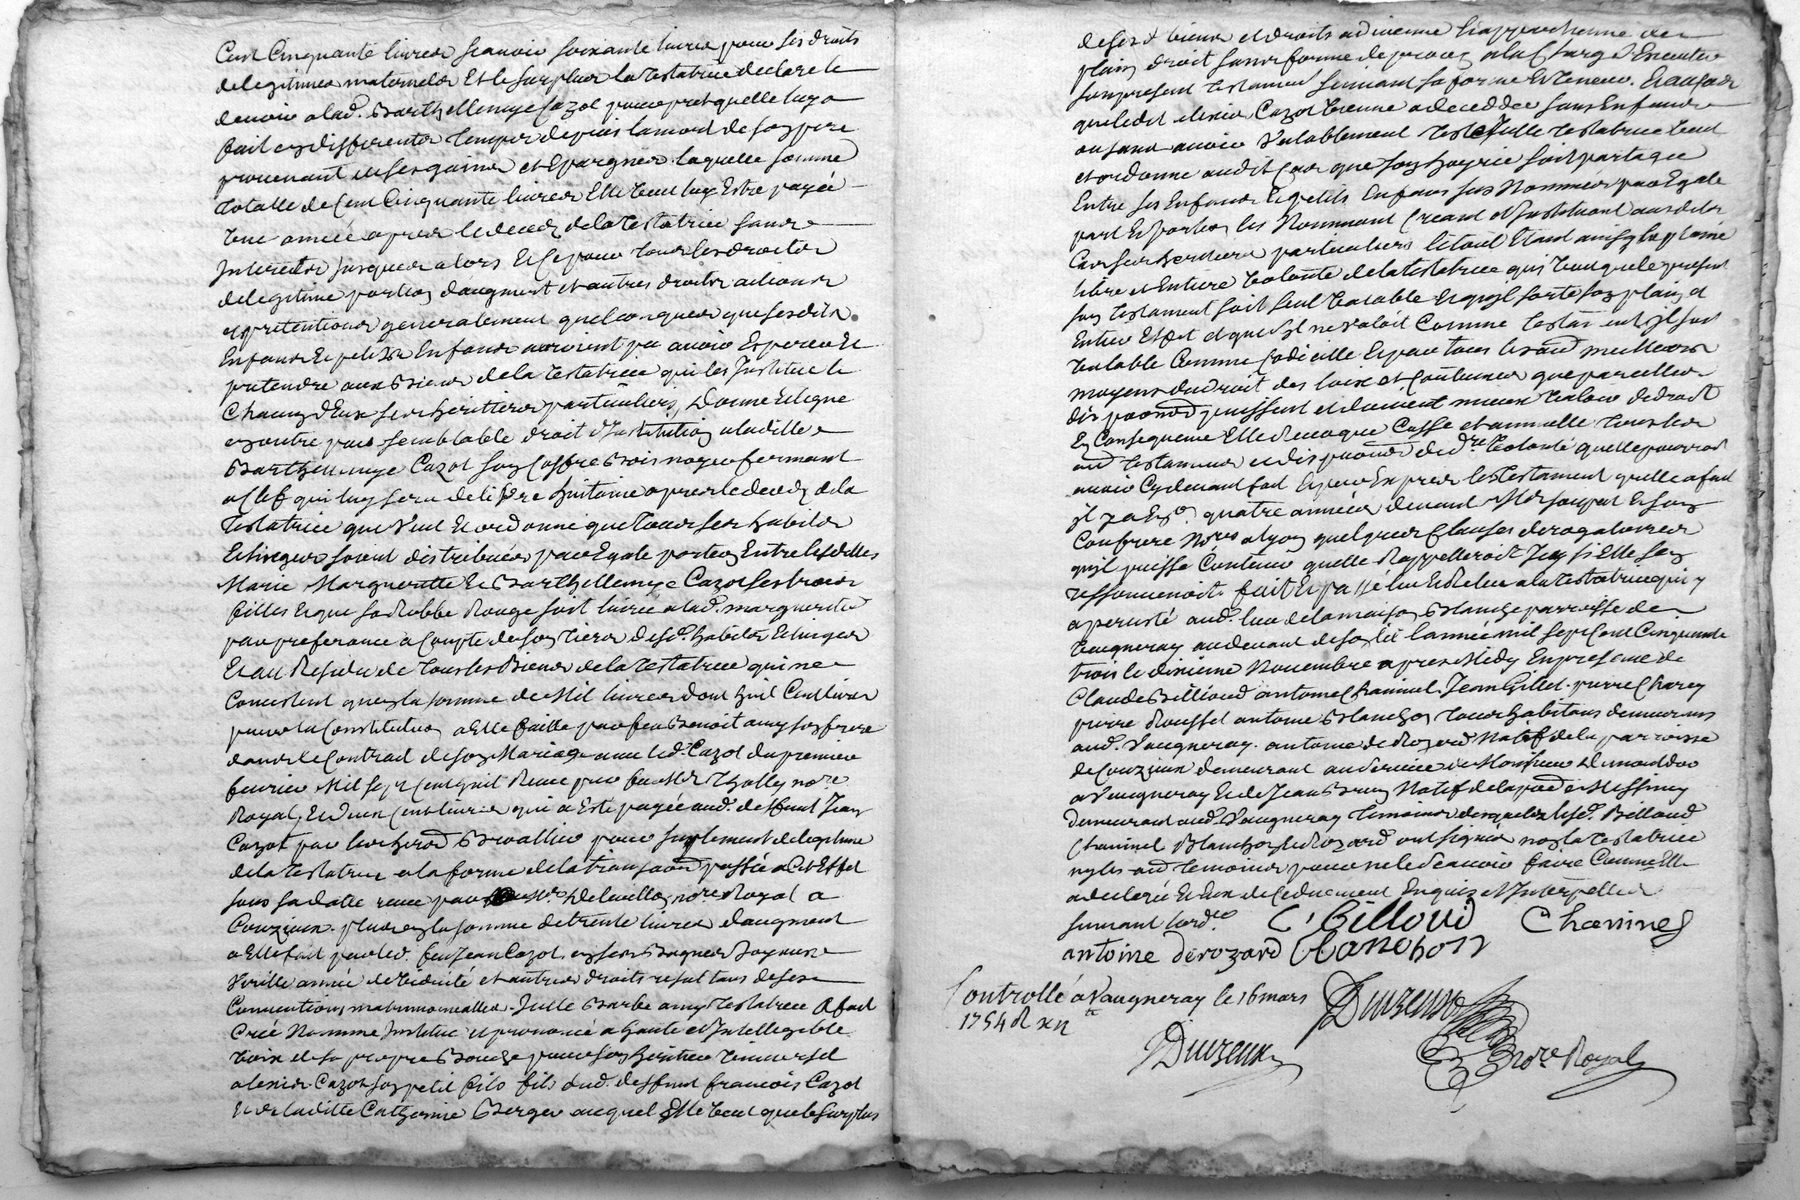 Cent Cinquante livres scavoir soixante livres pour ses droits
de legitimes maternelles Et le surplus la testatrice declare le
devoir a lad. Barthellemye Cazot pour prest quelle luy a
fait en differents temps depuis la mort de son pere
provenant de ses gaines et Epargnes laquelle somme
totalle de Cent Cinquante livres Elle veut luy Estre payée
une année apres le deces de la testatrice sans
Interets jusques alors Et ce pour tous les droits
de legitime portion d'augment et autres droits actions
et pretentions generalement quelconques que sesdits
Enfants Et petits Enfants auroient pu avoir Esperer Et
pretendre aux Biens de la testatrice qui les Institue le
Chacun d'Eux ses heritiers particuliers, Donne Et legue
en outre par semblable droit d'Institution a ladille
Barthellemye Cazot son Coffre Bois noyer fermant
a Clef qui luy sera delivre huitaine apres le deces de la
testatrice qui Veut Et ordonne que tous ses habits
Et linges soient distribués par Egale portion Entre lesdittes
Marie Margueritte Et Barthellemye Cazot ses trois
filles Et que sa Robbe Rouge soit livrée a lad. margueritte
par preferance a Compte de son tiers desd. habits Et linges
Et au Residu de tous les Biens de la testatrice qui ne
Consistent qu'en la somme de Mil livres dont huit Cent livres
pour la Constitution a Elle faitte par feu Benoit amy son frere
dans le Contrat de son Mariage avec led. Cazot du premier
fevrier Mil sept Cent huit Receu par feu Me Tholly nore
Royal, Et deux Cent livres qui a Esté payée aud. deffunt Jean
Cazot par les her. Brossallier pour suplement de legitime
de la testatrice a la forme de la transaon passée a Cet Effet
sous sa datte receue par Me Delavallo, nore Royal a
Couzieux. plus en la somme de trente livres d'augment
a Elle fait par led. feu Jean Cazot, en ses Bagues Joyaux
Virille année de Viduité et autres droits resultans de ses
Conventions matrimonialles. Jcelle Barbe amy testatrice a fait
Créé Nommé Institué et prononcé a haute et Intelligible
voix de sa propre Bouche pour son heritier universel
alexis Cazot son petit fils fils dud. deffunt francois Cazot
Et de laditte Catherine Berger auquel Elle veut que le surplus
desesd. biens et droits advienne Et appartienne de
plain droit sans forme de procez a la Charge d'Executer
son present testament suivant sa forme Et teneur. Et au Cas
que ledit alexis Cazot vienne a deceder sans Enfants
ou sans avoir Valablement testé Jcelle testatrice veut
et ordonne audit Cas que son hoyrie soit partagée
Entre ses Enfants Et petits Enfans sus Nommés par Egale
part Et portion les Nommant Creant et Instituant audit
Cas ses heritiers particuliers Et tout Etant ainsy la plaine
libre et Entiere Volonté de la testatrice qui veut que le present
son testament soit seul valable Et qu'il sorte son plain et
Entier Effet et que s'il ne valoit Comme testament, Il soit
Valable Comme Codicille Et par tous les aud. meilleurs
moyens du droit des loix et Coutumes que pareilles
dispoaons puissent et doivent mieux Valoir de droit
En Consequence Elle Revoque Casse et annulle tous les
aud testamens et dispoaons de dre Volonté quelle pourroit
avoir Cy devant fait Et par Exprès le testament quelle a fait
Il y a En. quatre années devant Me Soupat Et son
Confrere Nores a lyon quelques Clauses derogatoires
qu'il puisse Contenir quelle Rappelleroit Icy si Elle s'en
ressouvenoit. fait Et passé leu Et Releu a la testatrice qui y
a persisté aud. lieu de la maison Blanche parroisse de
Vaugneray au devant de son lit l'année mil sept Cent Cinquante
trois le dixieme Novembre apres Midy En presence de
Claude Billioud antoine Chaninel. Jean Gillet. pierre Charey
pierre Roussel antoine Blanchon tous habitans demeurans
aud. Vaugneray. antoine de Rozard Natif de la parroisse
de Couzieux demeurant au service de Monsieur
a Vaugneray Et de Jean Brun Natif de la pare. de Messimy
demeurant aud. Vaugneray temoins desquels lesd. Billoud
Chaninel Blanchon de Rozard ont signés non la testatrice
ny les aud temoins pour ne le Scavoir faire Comme Elle
a declaré Et Eux de Ce duement Enquis et Interpellés
suivant lordce C, Billoud Chaninel
antoine derozard Blanchon
Controllé a Vaugneray le 16 mars
1754 R xii s
Duizeux
Duizeux
Nore Royal